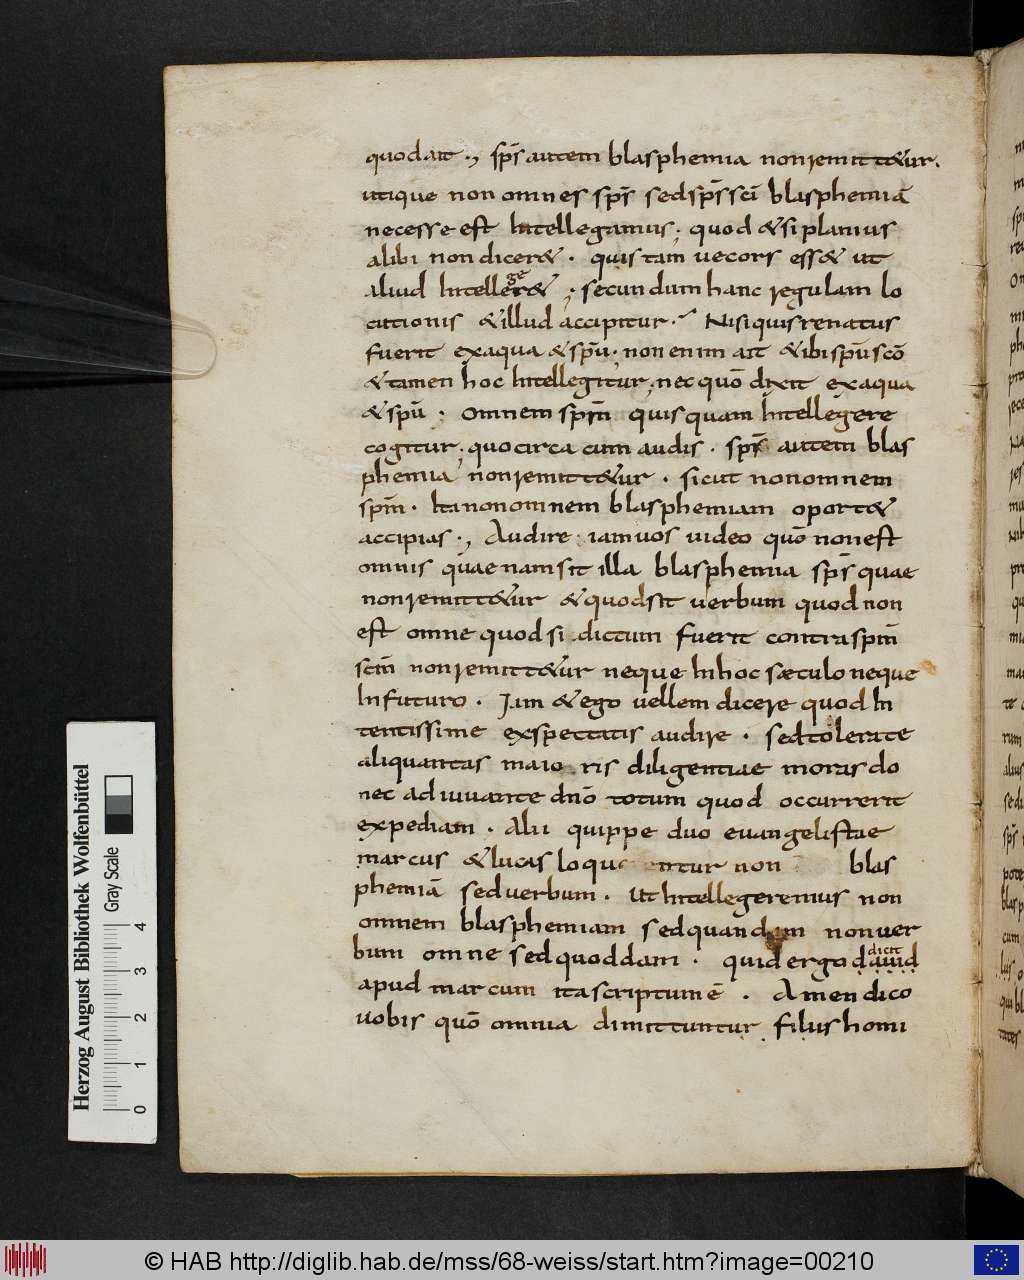 quod ait ., sp̄s autem blasphemia non remitt&ur.
utique non omnes sp̄s sed sp̄s sc̄i blasphemiā
necesse est Intellegamus; quod &si planius
alibi non dicer& . quis tam uecors ess& ut
aliud Intelleger& ; secundum hanc regulam lo
cutionis &illud accipitur . Nisi quis renatus
fuerit ex aqua &sp̄u. non enim ait &ibi sp̄u sc̄o
&tamen hoc Intellegitur; nec quō dixit ex aqua
&sp̄u . omnem sp̄m quisquam Intellegere
cogitur. quocirca cum audis . sp̄s autem blas
phemia non remitt&ur . sicut non omnem
sp̄m . Ita non omnem blasphemiam oport&
accipias ., Audire iam uos uideo quō non est
omnis quae nam sit illa blasphemia sp̄s quae
non remitt&ur &quod sit uerbum quod non
est omne quod si dictum fuerit contra sp̄m
sc̄m non remitt&ur neque In hoc sæculo neque
In futuro . Iam &ego uellem dicere quod In
tentissime exspectatis audire . sed tolerate
aliquantas maioris diligentiae moras do
nec adiuuante dn̄o totum quod occurrerit
expediam . Alii quippe duo euangelistae
marcus &lucas loqu ntur non blas
phemiā sed uerbum . ut Intellegeremus non
omnem blasphemiam sed quandam non uer
bum omne sed quoddam . quid ergo dicit dauid
apud marcum ita scriptum ē . Amen dico
uobis quō omnia dimittuntur filiis homi
Herzog August Bibliothek Wolfenbüttel
Gray Scale
0 1 2 3 4
© HAB http://diglib.hab.de/mss/68-weiss/start.htm?image=00210